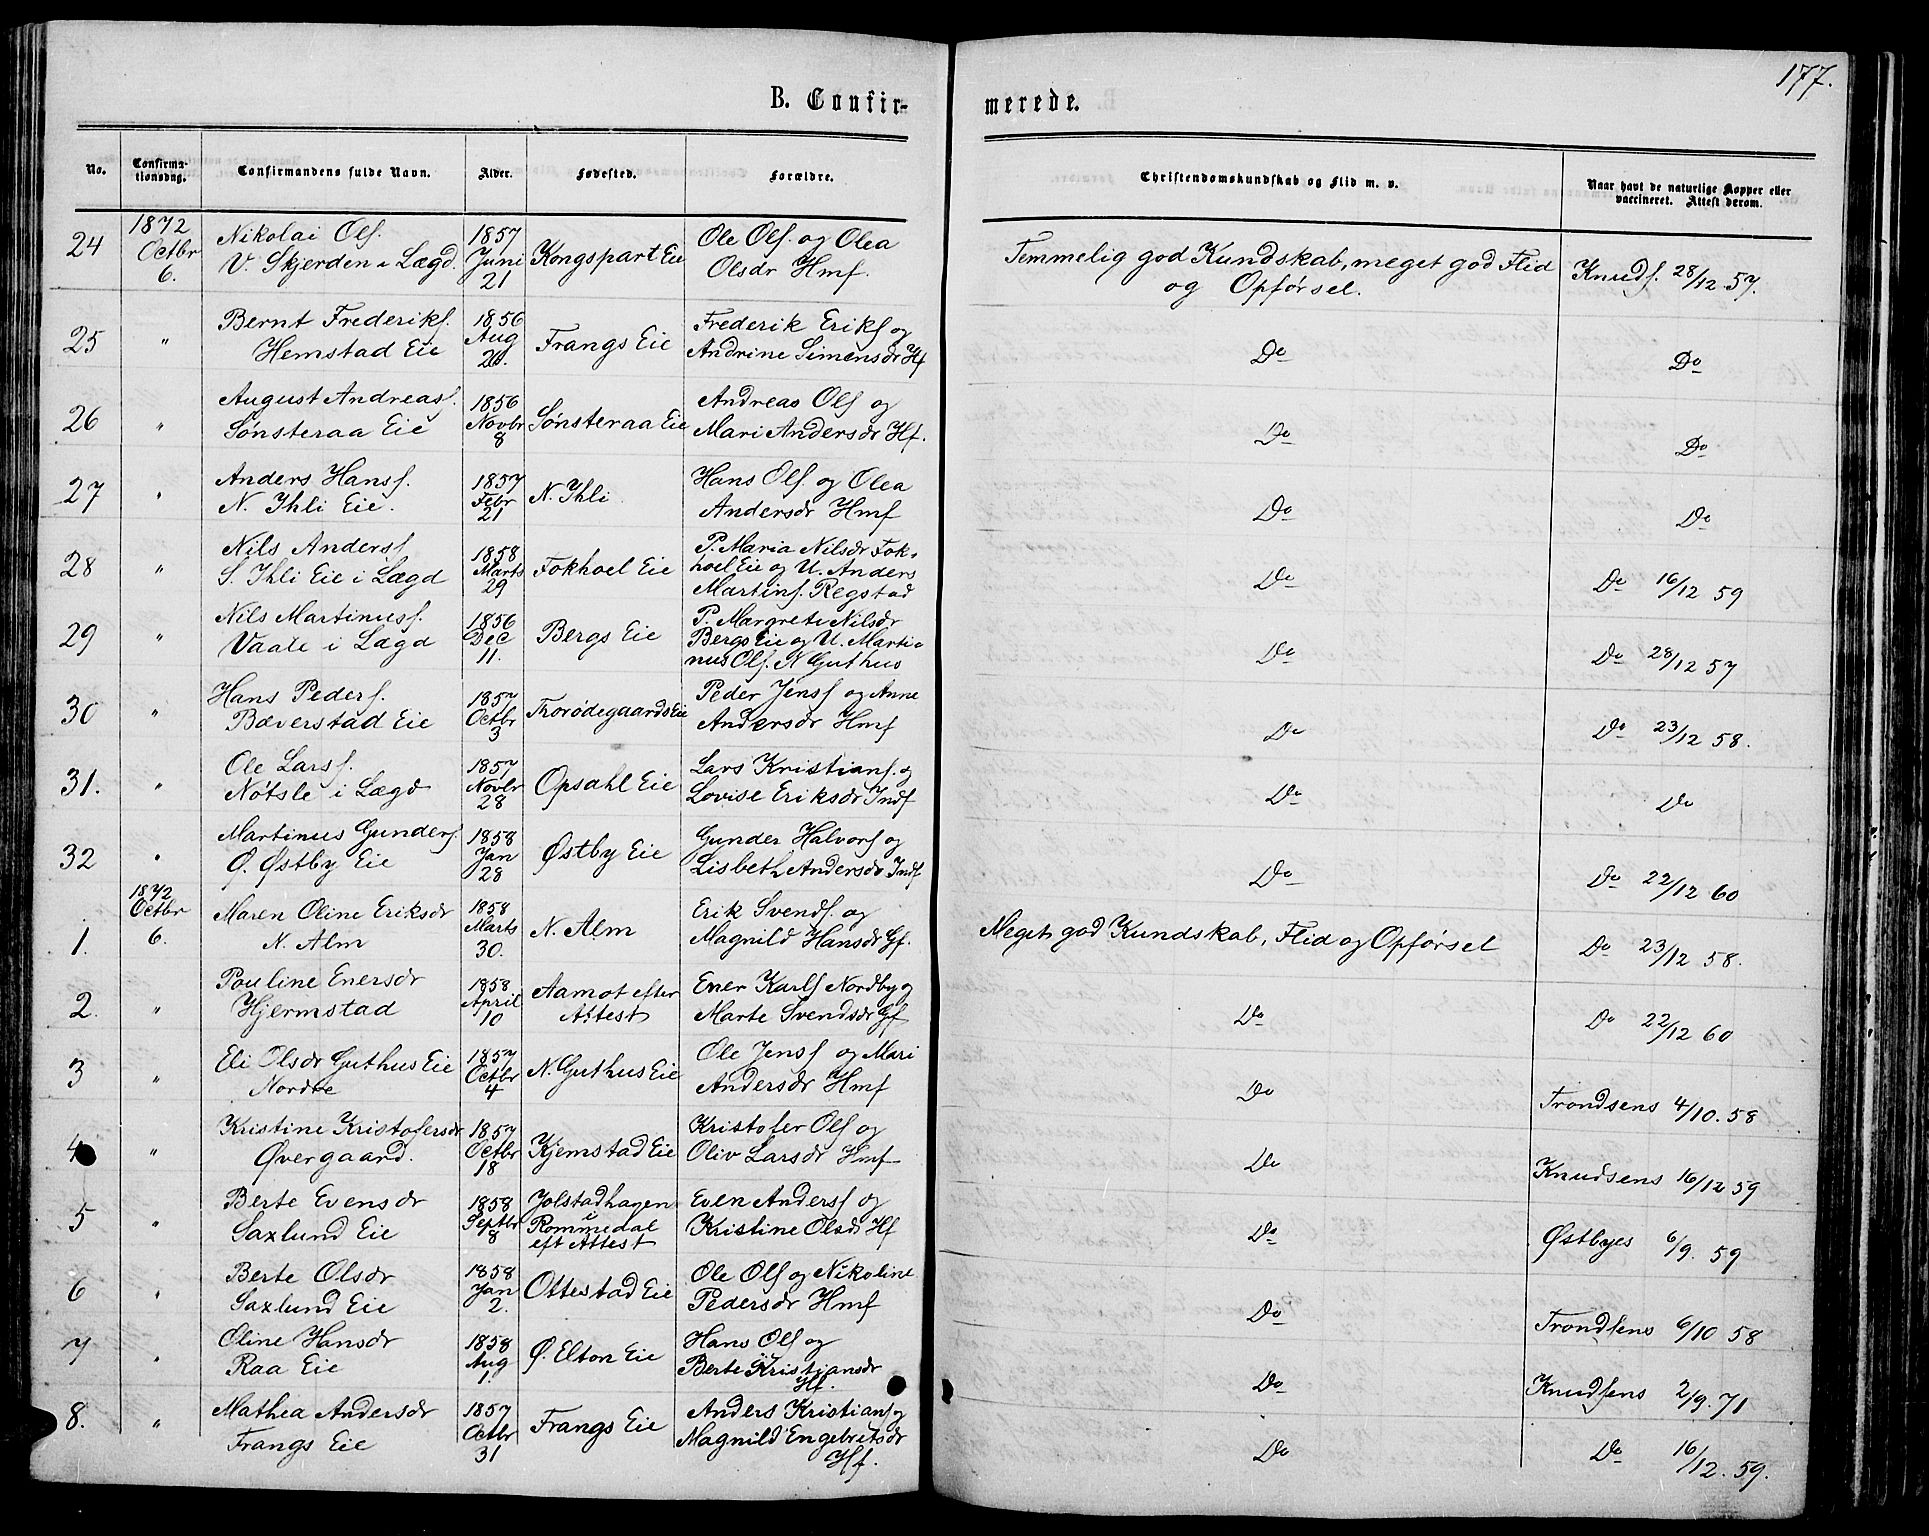 177.
B. Confir-
merede.
No.
Confirma-
tionsdag.
Confirmandens fulde Navn.
Alder.
Fødested.
Forældre.
Christendomskundskab og Flid m. v.
Naar havt de naturlige Kopper eller
vaccineret. Attest derom.
24
1872
Octbr
6.
Nikolai Ols.
V. Skjerden i Lægd.
1857
Juni
21
Kongspart Eie
Ole Ols. og Olea
Olsdr Hmf.
Temmelig god Kundskab, meget god Flid
og Opførsel.
Knuds. 28/12 57.
25
"
Bernt Frederiks.
Hemstad Eie
1856
Aug
Frangs Eie
Frederik Eriks og
Andrine Simensdr Hf
Do
Do
26
"
August Andreas.
Sønsteraa Eie
1856
Novbr
8
Sønsteraa Eie
Andreas Ols og
Mari Andersdr Hf.
Do
Do
27
"
Anders Hans.
N. Ihli Eie.
1857
Febr
21
N. Ihli
Hans Ols. og Olea
Andersdr Hmf
Do
Do
28
"
Nils Anders
S. Ihli Eie i Lægd
1858
Marts
29
Fokhoel Eie
P. Maria Nilsdr Fok-
hoel Eie og U. Anders
Martins. Regstad
Do
Do 16/12 59
29
"
Nils Martinus.
Vaale i Lægd
1856
Dec
11.
Bergs Eie
P. Margrete Nilsdr
Bergs Eie og U. Marti-
nus Ols. N Guthus
Do
Do 28/12 57
30
"
Hans Peders.
Bæverstad Eie
1857
Octbr
3
Thorødegaards Eie
Peder Jens og Anne
Andersdr Hmf
Do
Do 23/12 58.
31.
"
Ole Lars.
Nøtsle i Lægd
1857
Novbr
28
Opsahl Eie
Lars Kristians. og
Lovise Eriksdr Indf
Do
Do
32
"
Martinus Gunders.
Ø. Østby Eie
1858
Jan
28
Østby Eie
Gunder Halvors og
Lisbeth Andersdr Indf
Do
Do 22/12 60
1.
1872
Octbr
6.
Maren Oline Eriksdr
N. Alm
1858
Marts
30.
N. Alm
Erik Svends. og
Magnild Hansdr Gf.
Meget god Kundskab, Flid og Opførsel
Do 23/12 58.
2.
"
Pouline Enersdr
Hjermstad
1858
April
10
Aamot efter
Attest
Ener Karls Nordby og
Marte Svendsdr Gf
Do
Do 22/12 60
3
"
Eli Olsdr Guthus Eie
Nordre
1857
Octbr
4
N. Guthus Eie
Ole Jens og Mari
Andersdr Hmf
Do
Trondsens 4/10. 58
4
"
Kristine Kristofersdr
Øvergaard.
1857
Octbr
18
Kjemstad Eie
Kristofer Ols og
Oliv Larsdr Hmf
Do
Knudsens 16/12 59
5
"
Berte Evensdr
Saxlund Eie
1858
Septbr
8
Jolstadhagen
i
Rommedal
eft Attest
Even Anders og
Kristine Olsdr Hf
Do
Østbyes 6/9. 59
6
"
Berte Olsdr
Saxlund Eie
1858
Jan
2.
Ottestad Eie
Ole Ols og Nikoline
Pedersdr Hmf
Do
Trondsens 6/10 58
7
"
Oline Hansdr
Raa Eie
1858
Aug
1.
Ø. Elton Eie
Hans Ols og
Berte Kristiansdr
Hf.
Do
Knudsens 2/9. 71
8.
"
Mathea Andersdr
Frangs Eie
1857
Octbr
31
Frangs Eie
Anders Kristians og
Magnild Engebritsdr
Hf.
Do
Do 16/12. 59.